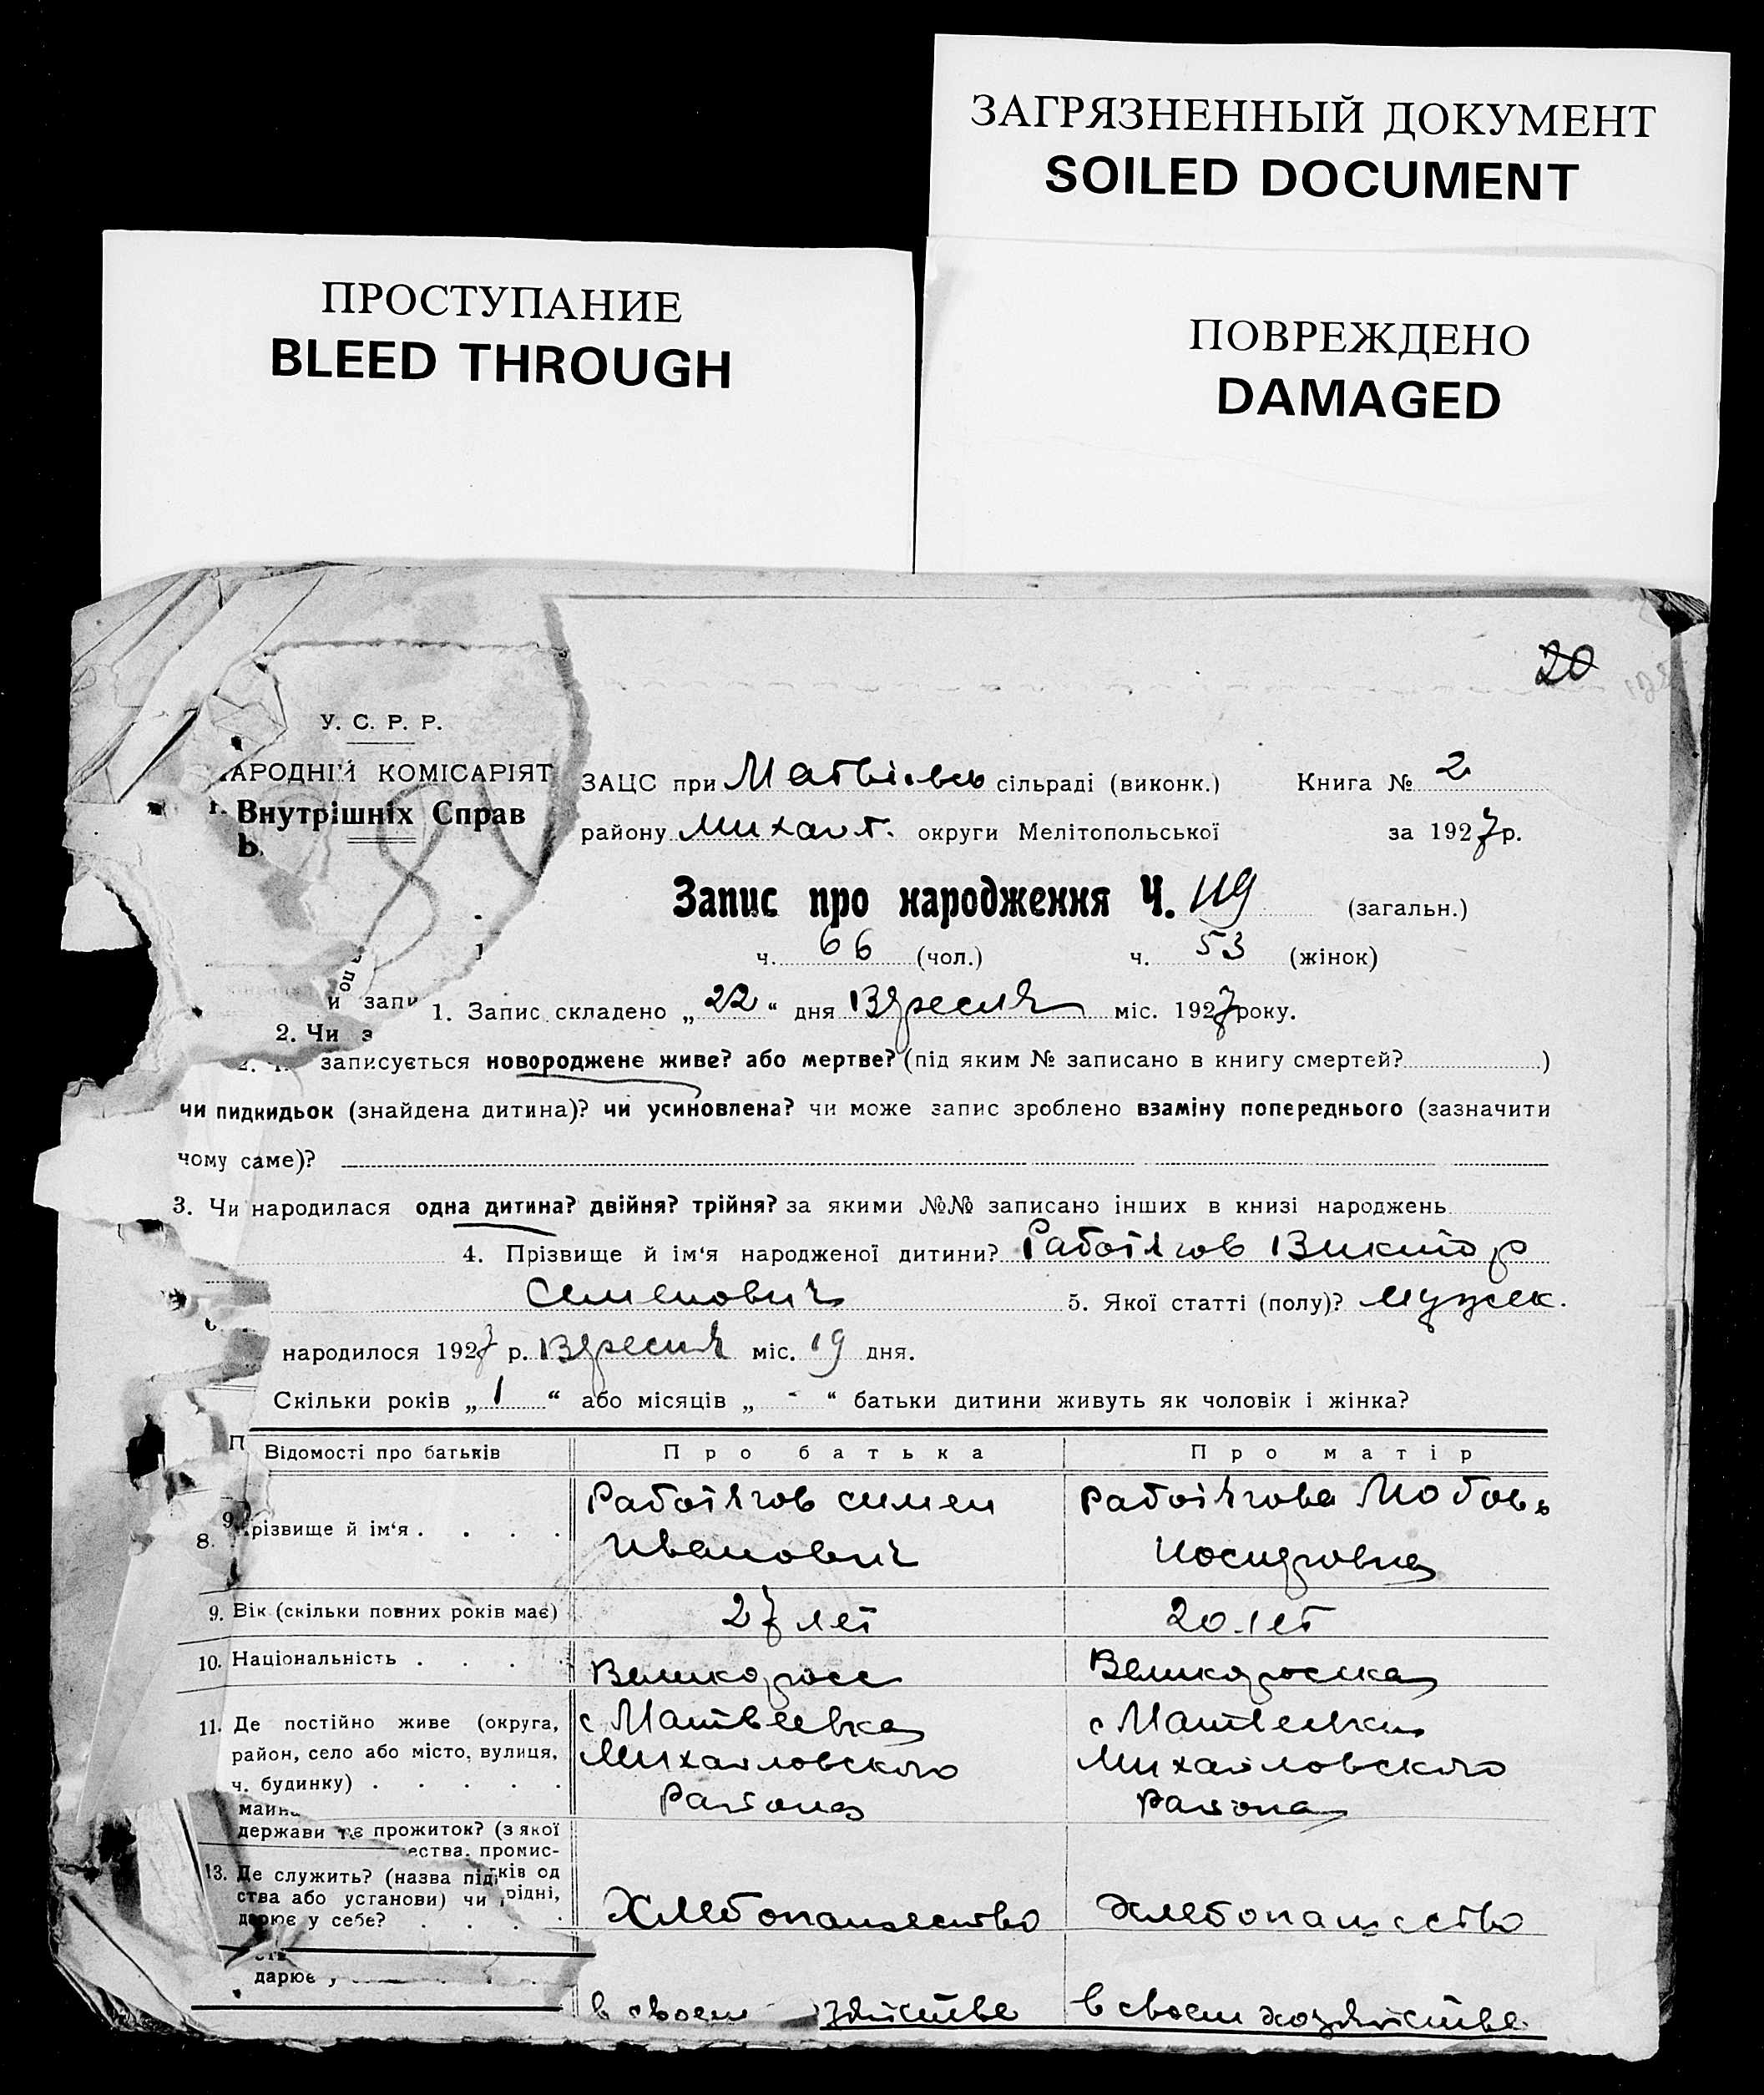 ЗАГРЯЗНЕННЫЙ ДОКУМЕНТ
SOILED DOCUMENT
ПРОСТУПАНИЕ
BLEED THROUGH
ПОВРЕЖДЕНО
DAMAGED
20
У. С. Р. Р.
АРОДНІЙ КОМІСАРІЯТ
Внутрішніх Справ
ЗАЦС при сільраді (виконк.) Книга № 2
району Михайл. округи Мелітопольської за 1927 р.
Запис про народження Ч. 119 (загальн.)
ч. 66 (чол.) ч. 53 (жінок)
и запи
2. Чи з
1. Запис складено „22“ дня Вересня міс. 1927 року.
записується новороджене живе? або мертве? (під яким № записано в книгу смертей? )
чи пидкидьок (знайдена дитина)? чи усиновлена? чи може запис зроблено взаміну попереднього (зазначити
чому саме)?
3. Чи народилася одна дитина? двійня? трійня? за якими №№ записано інших в книзі народжень
4. Прізвище й ім‘я народженої дитини? Работягов Виктор
Семенович 5. Якої статті (полу)? мужск.
народилося 1927 р. Вересня міс. 19 дня.
Скільки років „1“ або місяців „-“ батьки дитини живуть як чоловік і жінка?
Відомості про батьків Про батька Про матір
8. різвище й ім‘я . . . . Работягов симен Работягова Любовь
Иванович Иосифовна
9. Вік (скільки повних років має) 27 лет 20 лет
10. Національність . . . . Великоросс Великоросска
11. Де постійно живе (округа, с Матвеевка с Матвеевка
район, село або місто, вулиця, Михайловского Михайловского
ч. будинку) . . . . . Района Района
держави прожиток? (з якої
ества, промис-
13. Де служить? (назва під ків од
ства або установи) чи рідні,
дарює у себе? . . . . Хлебопашество Хлебопашество
дарює у
в своем зяйстве в своем хозяйстве